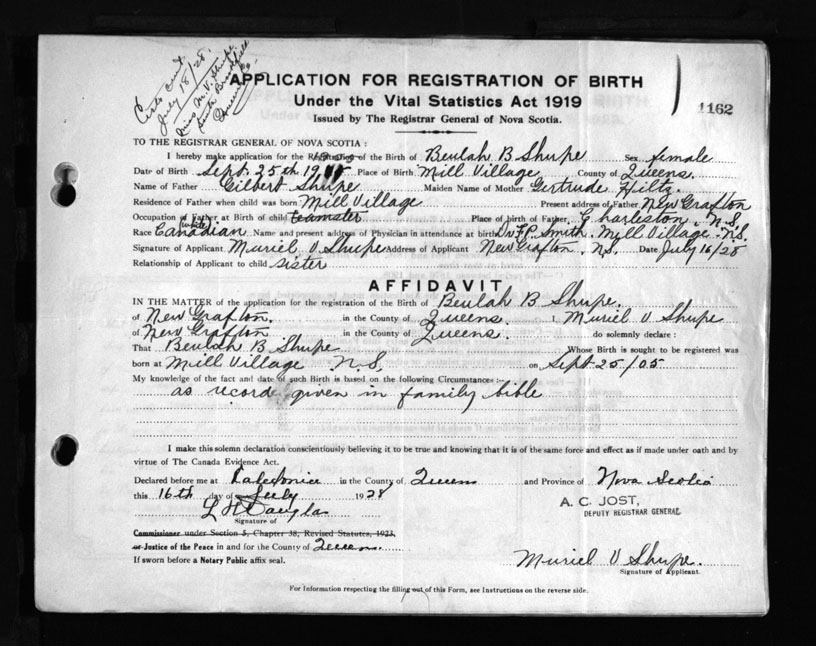 Certs cert.
July 18/28.
Miss M. V. Shupe
South Brookfield
Queens Co.
APPLICATION FOR REGISTRATION OF BIRTH
Under the Vital Statistics Act 1919
Issued by The Registrar General of Nova Scotia.
1162
TO THE REGISTRAR GENERAL OF NOVA SCOTIA:
I hereby make application for the Registration of the Birth of Beulah B Shupe Sex female
Date of Birth Sept. 25th 1905 Place of Birth Mill Village County of Queens
Name of Father Gilbert Shupe Maiden Name of Mother Gertrude Hiltz
Residence of Father when child was born Mill Village Present address of Father New Grafton
Occupation of Father at Birth of child teamster Place of birth of Father Charleston, N.S.
Race (white) Canadian Name and present address of Physician in attendance at birth Dr F.P. Smith, Mill Village, N.S.
Signature of Applicant Muriel V Shupe Address of Applicant New Grafton, N.S. Date July 16/28
Relationship of Applicant to child sister
AFFIDAVIT
IN THE MATTER of the application for the registration of the Birth of Beulah B Shupe.
of New Grafton. in the County of Queens I, Muriel V Shupe
of New Grafton in the County of Queens. do solemnly declare:
That Beulah B Shupe Whose Birth is sought to be registered was
born at Mill Village N.S. on Sept 25/05
My knowledge of the fact and date of such Birth is based on the following Circumstances:-
as record given in family bible
I make this solemn declaration conscientiously believing it to be true and knowing that it is of the same force and effect as if made under oath and by
virtue of The Canada Evidence Act.
Declared before me at Caledonia in the County of Queens and Province of Nova Scotia
this 16th day of July 1928
A. C. JOST,
DEPUTY REGISTRAR GENERAL
L H Douglas
Signature of
Commissioner under Section 5, Chapter 38, Revised Statutes, 1923,
or Justice of the Peace in and for the County of Queens.
If sworn before a Notary Public affix seal.
Muriel V Shupe.
Signature of Applicant.
For Information respecting the filling out of this Form, see Instructions on the reverse side.